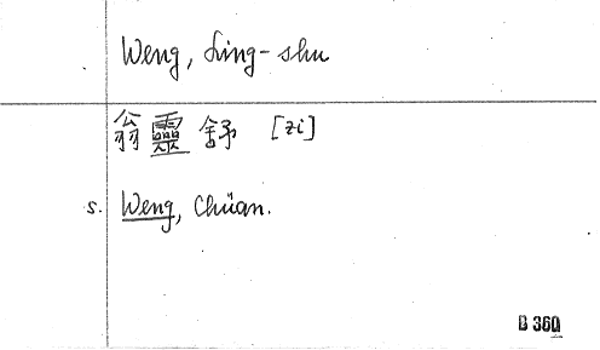 Weng, Ling-shu
翁靈舒 [zi]
s. Weng, Chüan.
B 360